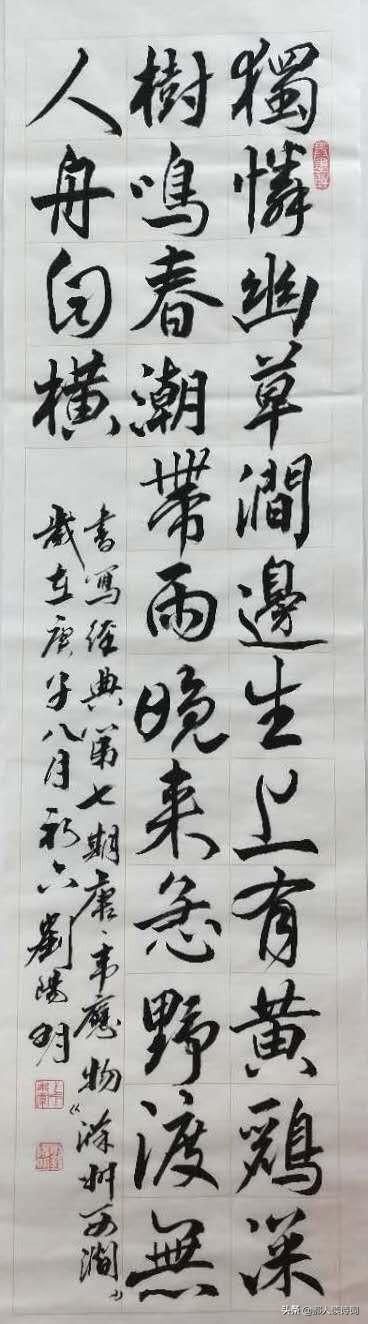 獨憐幽草澗邊生上有黃鸝深
樹鳴春潮帶雨晚來急野渡無
人舟自橫
書寫經典第七期唐、韋應物《滁州西澗》
歲在庚子八月初六劉陽明
头条@那人读诗词